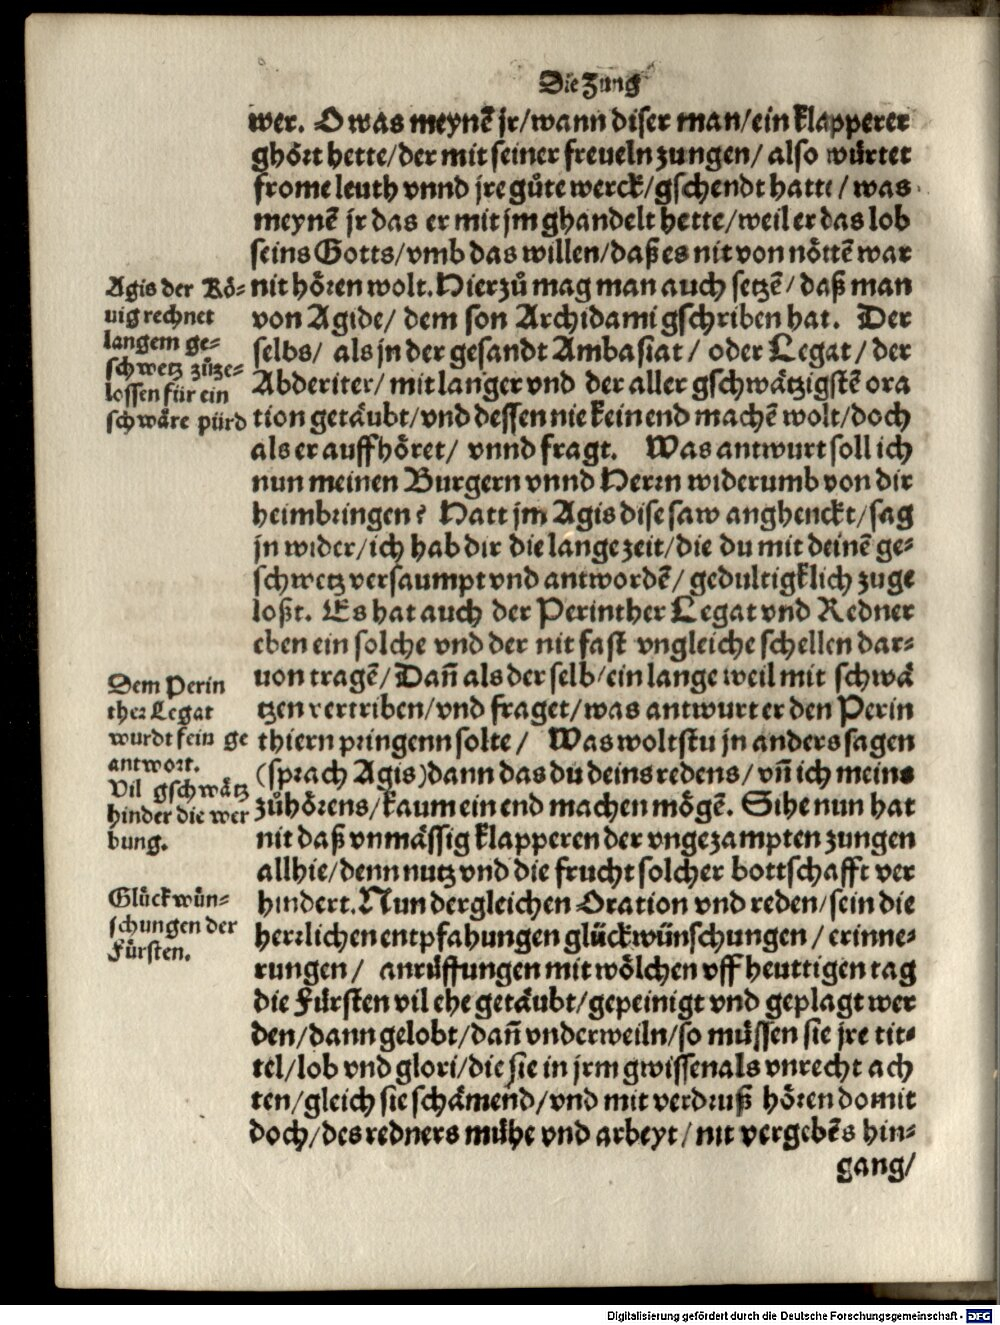 Die Zung
wer. O was meynē jr/wann diser man/ein klapperer
ghört hette/der mit seiner freueln zungen/ also würtet
frome leuth vnnd jre gůte werck/gschendt hatte/ was
meynē jr das er mit jm ghandelt hette/weil er das lob
seins Gotts/vmb das willen/daß es nit von nöttē war
nit hören wolt. Hierzů mag man auch setzē/ daß man
von Agide/ dem son Archidami gschriben hat. Der
selbs/ als jn der gesandt Ambasiat/ oder Legat/ der
Abderiter/ mit langer vnd der aller gschwätzigstē ora
tion getäubt/vnd dessen nie kein end machē wolt/doch
als er auffhöret/ vnnd fragt. Was antwurt soll ich
nun meinen Burgern vnnd Herrn widerumb von dir
heimbringen? Hatt jm Agis dise saw anghenckt/sag
jn wider/ich hab dir die lange zeit/die du mit deinē ge-
schwetz versaumpt vnd antwordē/ gedultigklich zuge
loßt. Es hat auch der Perinther Legat vnd Redner
eben ein solche vnd der nit fast vngleiche schellen dar-
uon tragē/ Dañ als der selb/ein lange weil mit schwä
tzen vertriben/vnd fraget/was antwurt er den Perin
thiern pringenn solte/ Was woltstu jn anders sagen
(sprach Agis) dann das du deins redens/ vñ ich meins
zůhörens/kaum ein end machen mögē. Sihe nun hat
nit daß vnmässig klapperen der vngezampten zungen
allhie/denn nutz vnd die frucht solcher bottschafft ver
hindert. Nun dergleichen Oration vnd reden/sein die
herrlichen entpfahungen glückwünschungen/ erinne-
rungen/ anrüffungen mit wölchen vff heuttigen tag
die Fürsten vil ehe getäubt/gepeinigt vnd geplagt wer
den/dann gelobt/dañ vnderweiln/so müssen sie jre tit-
tel/lob vnd glori/die sie in jrm gwissen als vnrecht ach
ten/gleich sie schämend/vnd mit verdruß hören domit
doch/des redners mühe vnd arbeyt/nit vergebēs hin-
gang/
Agis der Kö-
nig rechnet
langem ge-
schwetz zůze-
lossen für ein
schwäre pürd
Dem Perin
ther Legat
wurdt fein ge
antwort.
Vil gschwätz
hinder die wer
bung.
Glückwün-
schungen der
Fürsten.
Digitalisierung gefördert durch die Deutsche Forschungsgemeinschaft - DFG